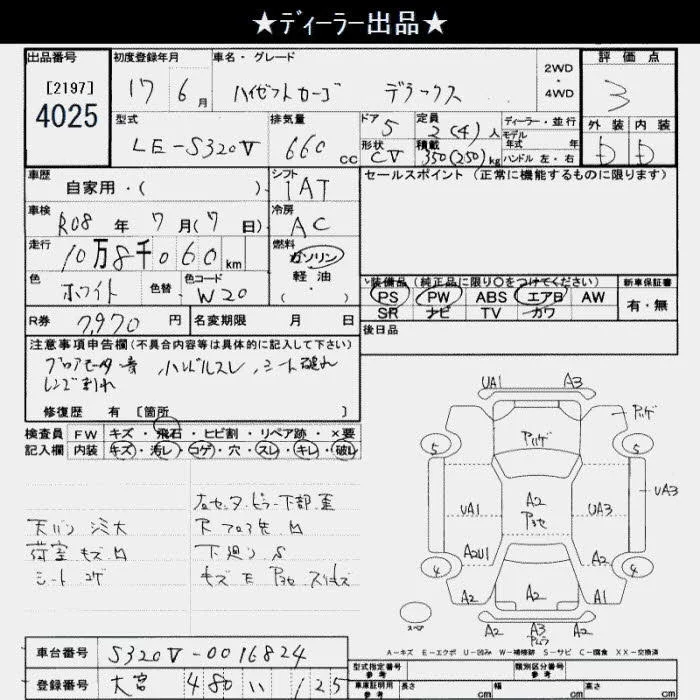 ★ディーラー出品★
出品番号
[2197]
4025
初度登録年月
17 6月
車名・グレード
ハイゼットカーゴ デラックス
2WD
・
4WD
評価点
3
型式
LE-S320V
排気量
660 cc
ドア
5
形状
CV
定員
2(4)人
積載
350(250)kg
ディーラー・並行
モデル
年式 年
ハンドル 左・右
外装 内装
D D
車歴
自家用・( )
シフト
IAT
セールスポイント(正常に機能するものに限ります)
車検
R08年7月(7日)
冷房
AC
走行
10万8千060km
燃料
ガソリン
軽油
( ・ )
色
ホワイト
色替
色コード
W20
装備品(純正品に限り○をつけてください)
PS PW ABS エアB AW
SR ナビ TV カワ
新車保証書
有・無
R券
7,970円
名変期限 月 日
後日品
注意事項申告欄(不具合内容等は具体的に記入して下さい)
ブロアモーター音、ハンドルスレ、シート破れ
レンズ割れ
修復歴 有 [箇所 ]
検査員 FW キズ・飛石・ヒビ割・リペア跡・×要
記入欄 内装 キズ・汚レ・コゲ・穴・スレ・キレ・破レ
右センターピラー下部歪
天バリ 汚大
荷室 キズ
シート コゲ
下廻り S
UA1 A3
5 5
UA1 A2 UA3 UA3
A2U1 A2
4 4
A2 A2 A1
スペア
A2 A3 A2
A-キズ E-エクボ U-凹み W-補修跡 S-サビ C-腐食 XX-交換済
車台番号
S320V-0016824
登録番号
大宮 480 い 125
型式指定番号
参考
類別区分番号
参考
車庫証明用
参考
長さ cm
幅 cm
高さ cm